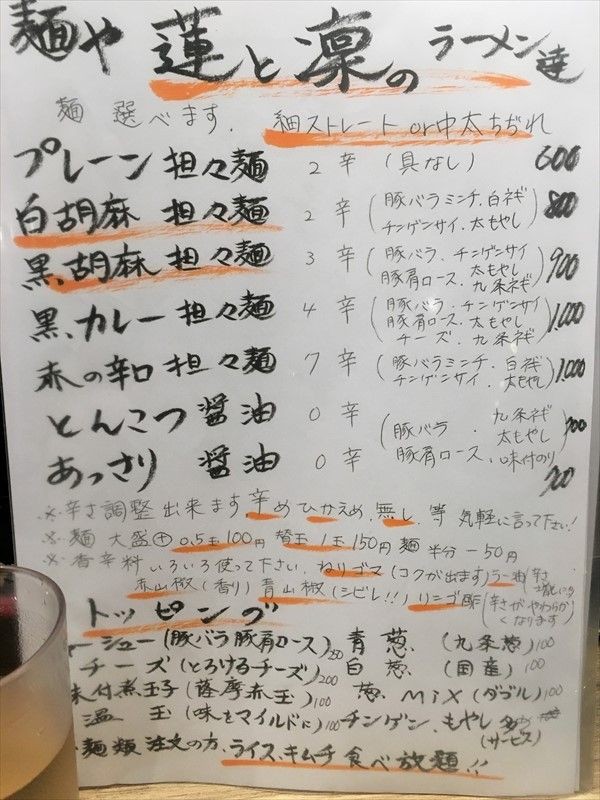 麺や 蓮と凛の ラーメン達
麺 選べます. 細ストレート or 中太ちぢれ
プレーン 担々麺 2辛 (具なし) 600
白胡麻 担々麺 2辛 (豚バラミンチ.白ネギ チンゲンサイ.太もやし) 800
黒胡麻 担々麺 3辛 (豚バラ.チンゲンサイ 豚肩ロース.太もやし 九条ネギ) 900
黒カレー 担々麺 4辛 (豚バラ.チンゲンサイ 豚肩ロース.太もやし チーズ.九条ネギ) 1,000
赤の辛口 担々麺 7辛 (豚バラミンチ.白ネギ チンゲンサイ.太もやし) 1,000
とんこつ 醤油 0辛 (豚バラ.九条ネギ 太もやし 700
あっさり 醤油 0辛 豚肩ロース.味付のり) 700
※辛さ調整出来ます辛めひかえめ.無し.等 気軽に言って下さい!
※麺 大盛⊕0.5玉100円 替玉 1玉150円 麺 半分-50円
※香辛料 いろいろ使って下さい.ねりゴマ(コクが出ます)ラー油(辛さ
赤山椒(香り)青山椒(シビレ!!)リンゴ酢(辛さがやわらかくなります)
トッピング
ーシュー(豚バラ豚肩ロース)250 青葱 (九条葱)100
チーズ(とろけるチーズ)200 白葱 (国産)100
味付煮玉子(薩摩赤玉)100 葱 MIX(ダブル)100
温玉(味をマイルドに)100 チンゲン.もやし (サービス)
麺類注文の方、ライス、キムチ食べ放題!!